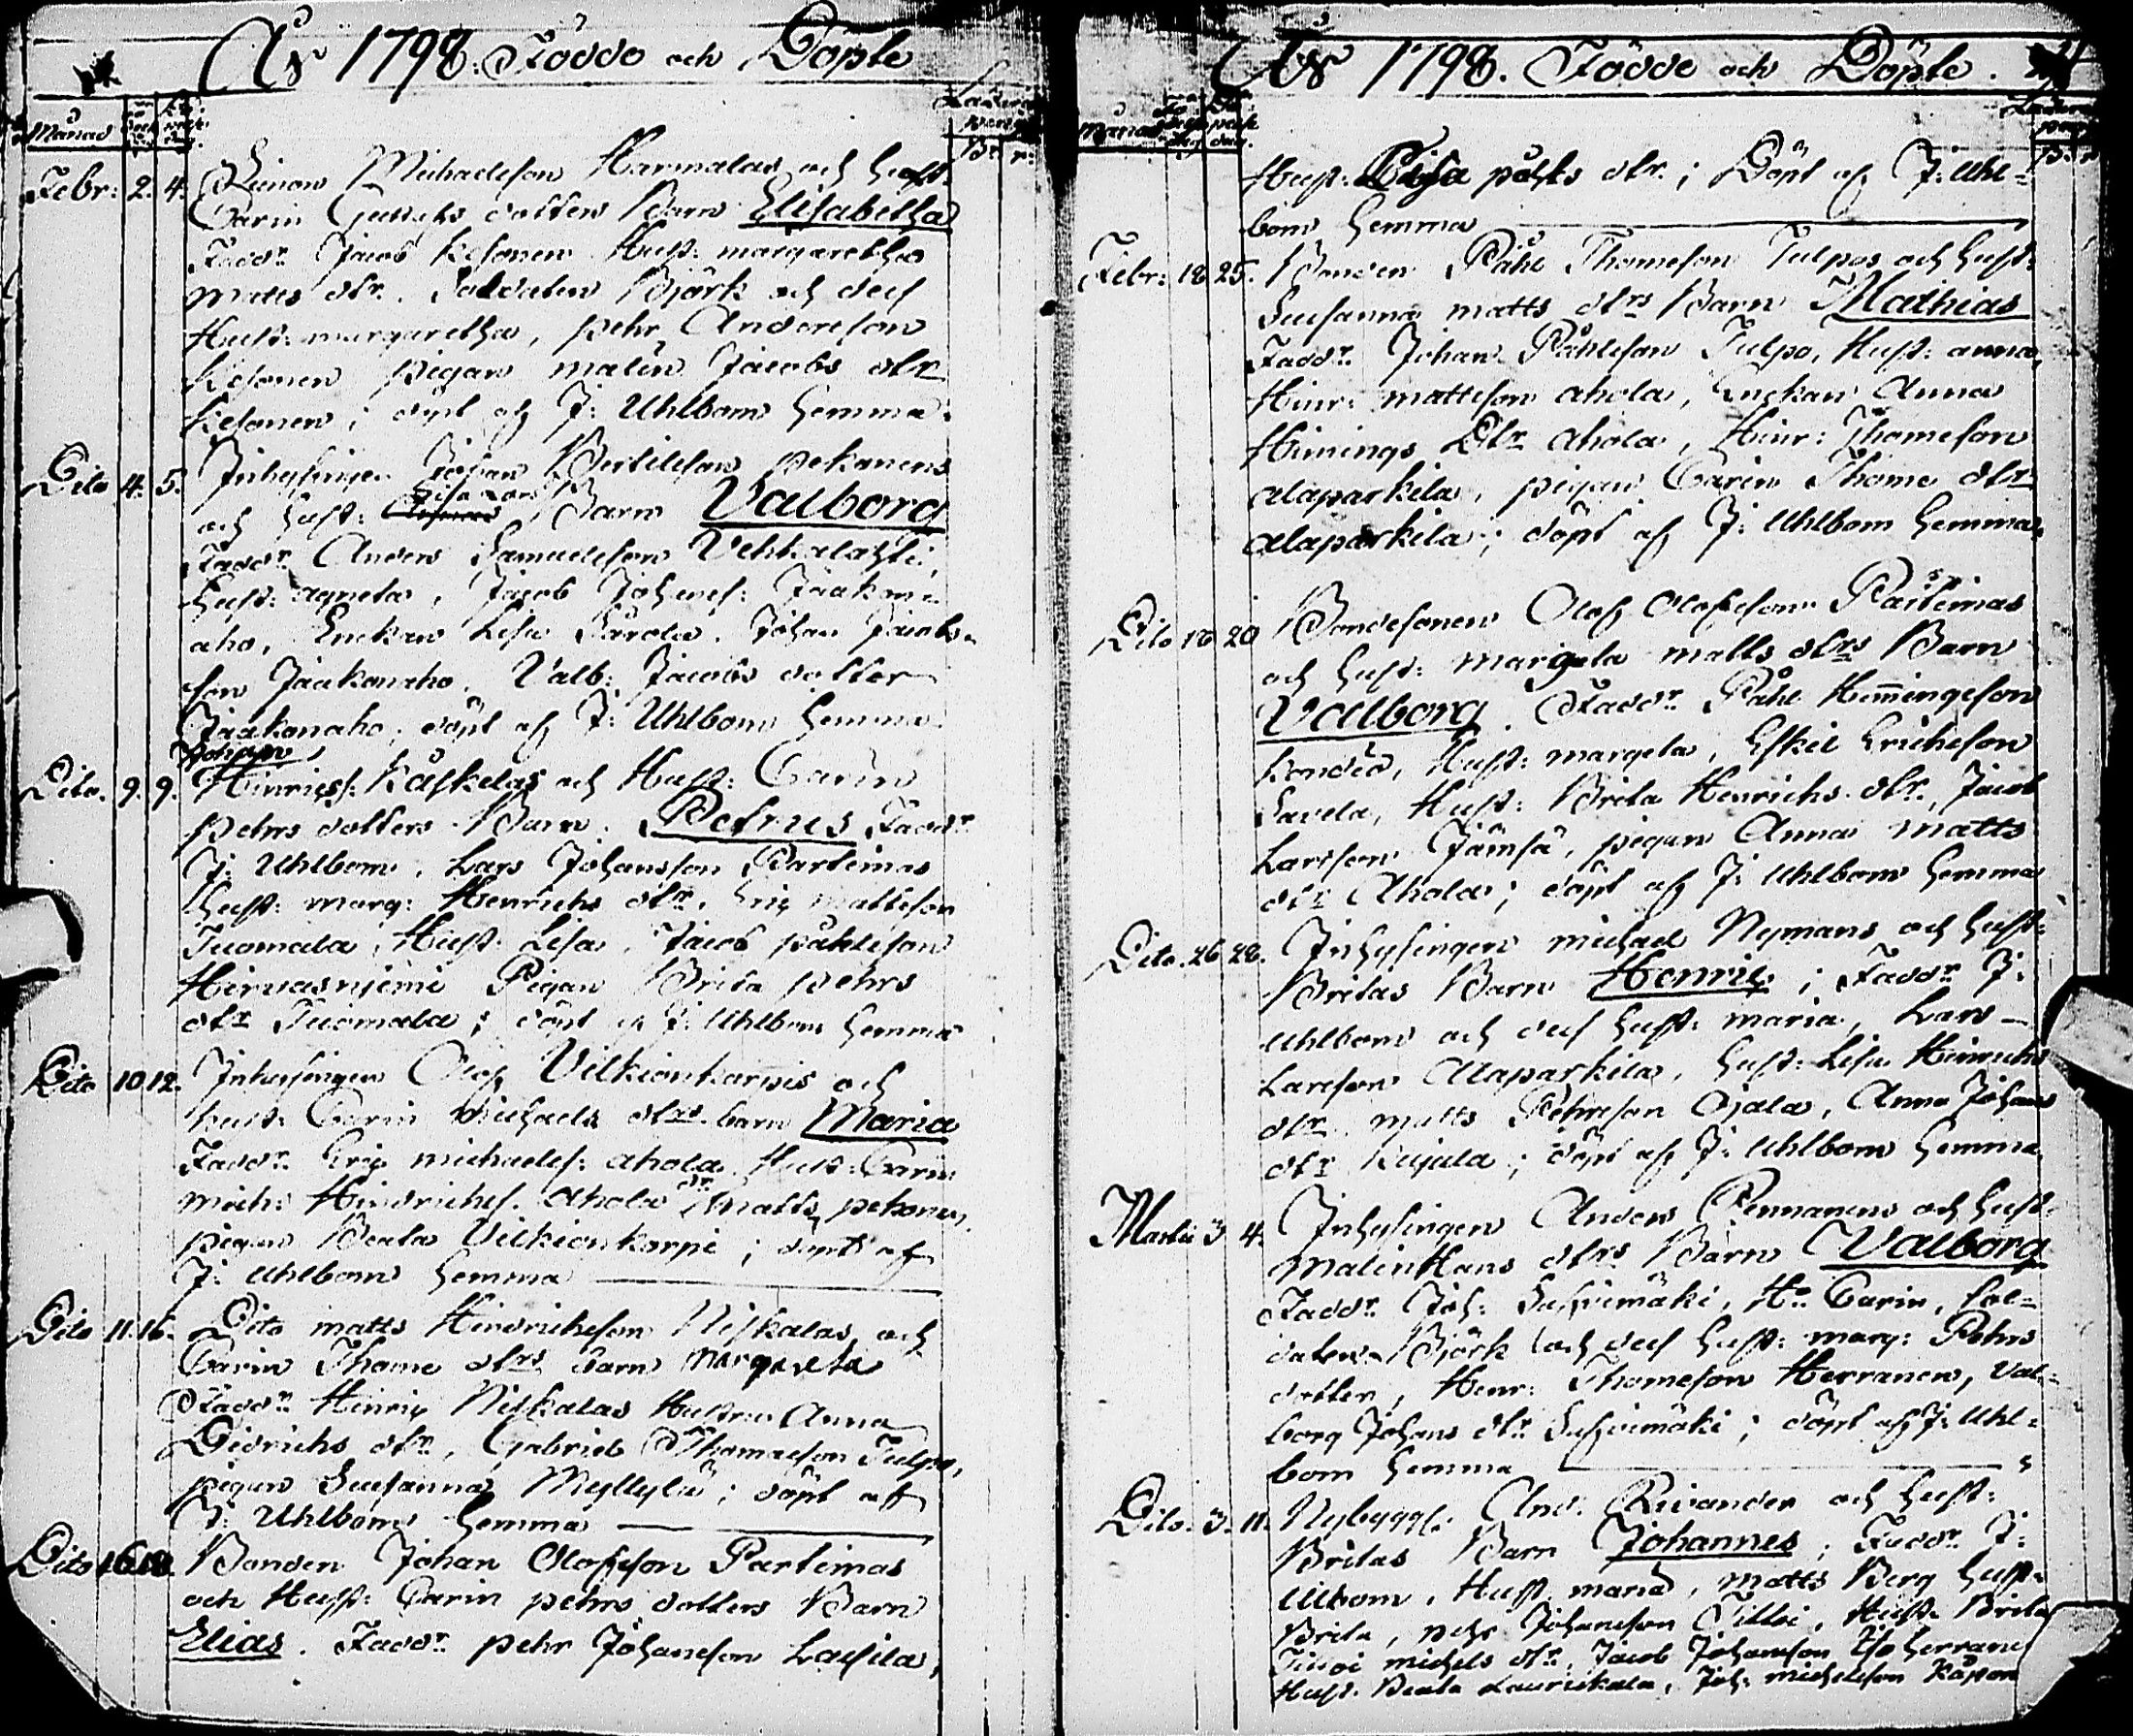 År 1798. Födde och Döpte
Månad
Febr: 2. 4. Michaelson Harmalas och Hust.
Carin dotters Barn Elisabetha
Fadd:r Jacob Kesonen Hust: margaretha
matts dtr. Soldaten Björk och des
Hust: margaretha, pehr Andersson
Kesonen pigan malin Jacobs dtr
Kesonen; döpt af J: Uhlbom hemma.
Dito 4. 5. Inhysingen Johan Bertilsson pekanens
och hust: Lisa Lars Barn Valborg
Fadd:r Anders Samuelsson Vehkalahti,
hust: agneta, Jacob Johans: Jaakon
aho, Enckan Lisa Särola. Johan Jacobs
son Jaakonaho. Valb: Jacobs dotter
Jaakonaho; döpt af J: Uhlbom hemma
Johan
Dito. 9. 9. Hinricss. Käskelas och Hust: Carin
pehrs dotters Barn. Petrus Fadd:r
J: Uhlbom, Lars Johansson Partimas
hust: marg: Henrichs dtr. Eric mattsson
Tuomala, Hust: Lisa, Jacob påhlsson
Hirvasniemi Pigan Brita pehrs
dtr Tuomala; döpt af J: Uhlbom hemma
Dito 10. 12. Inhysingen Olof Vilkionkarpis och
hust: Carin Michaels dtrs barn Maria
Fadd:r Eric michaels: ahola Hust: Carin
mich: Hindrichss. Ahola dr matts pekanen.
pigan Beata Vilkionkarpi; döpt af
J: Uhlbom hemma
Dito 11. 16. Dito matts Hindrichsson Niskalas, och
Carin Thome dtrs barn Margareta
Fadd:r Hinric Niskalas Hustru Anna
Didrichs dtr, Gabriel Thomasson Tulpo,
pigan Susanna Myllylä; döpt af
J: Uhlbom hemma
Dito 16. 18. Bonden Johan Olofsson Partimas
och Hust: Carin pehrs dotters Barn
Elias. Fadd:r pehr Johansson Lassila,
År 1798. Födde och Döpte.
Månad
Hust: Caisa påhls dtr.; Döpt af J: Uhl-
bom hemma
Febr: 18 25. Bonden Påhl Thomeson Tulpos och hust:
Susanna matts dtrs Barn Mathias
Fadd:r Johan Påhlsson Tulpo, Hust: anna,
Hinr: mattsson ahola, Enckan Anna
Hinnings Dtr ahola, Hinr: Thomeson
alaparkila, pigan Carin Thome dtr
alaparkila; döpt af J: Uhlbom hemma.
Dito 18 20 Bondesonen Olof Olofsson Partimas
och hust: margeta matts dtrs Barn
Valborg. Fadd:r Påhl Hemmingsson
Hust: margeta, Eskil Erichsson
Savela, Hust: Brita Henrichs dtr, Jacob
Larsson Jämsä, pigan Anna matts
dtr Ahola; döpt af J: Uhlbom hemma
Dito. 26 28. Inhysingen michael Nymans och hust:
Britas Barn Henric; Fadd:r J:
Uhlbom och des hust: maria, Lars
Larsson Alaparkila, hust: Lisa Hinrichs
dtr matts Pehrsson Ojala, Anna Johans
dtr Kujula; döpt af J: Uhlbom hemma
Martii 3 4. Inhysingen Anders Pennanens och hust.
Malin Hans dtrs Barn Valborg
Fadd:r Joh: H:u Carin, sol-
daten Björk och des hust: marg: Pehrs
dotter, Henr: Thomeson Herranen, Val-
borg Johans dtr ; döpt af J: Uhl-
bom hemma
Dito. 3. 11. Nybygg: And: och hust:
Britas Barn Johannes; Fadd:r J:
Ulbom, Hust. maria, matts Berg hust:
Brita, pehr Johansson Hust: Brita
michels dtr, Jacob Johansson Iso herrane
Hust: Beata Laurikala, Joh: michelsson